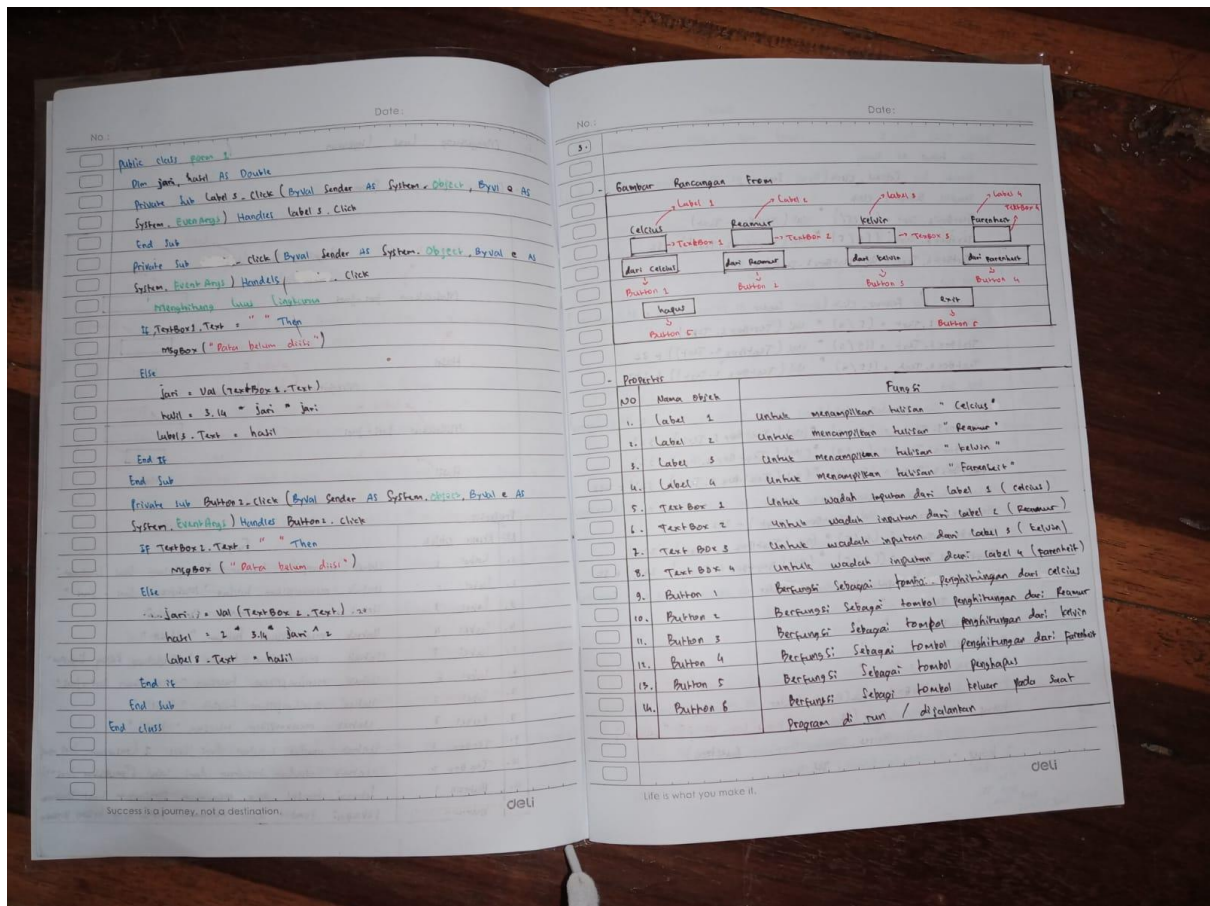 No.:
Date:
Public class Form 1
Dim jari, hasil As Double
Private Sub Label 3_Click (ByVal Sender As System.Object, Byval e As
System.EventArgs) Handles Label 3. Click
End Sub
Private Sub _Click (Byval Sender As System.Object, Byval e As
System.Event Args) Handels . Click
Menghitung luas lingkaran
If TextBox1.Text = " " Then
MsgBox ("Data belum diisi")
Else
jari = Val (TextBox 1.Text)
hasil = 3,14 * jari * jari
Label 3. Text = hasil
End If
End Sub
Private Sub Button 2_Click (ByVal Sender As System.Object, ByVal e As
System.EventArgs) Handles Button 2. Click
If TextBox 2. Text = " " Then
MsgBox ("Data belum diisi")
Else
jari = Val (TextBox 2. Text)
hasil = 2 * 3.14 * jari ^ 2
Label 8. Text = hasil
End if
End Sub
End class
Success is a journey, not a destination.
deli
No.:
Date:
3.
- Gambar Rancangan From
Label 1 Label 2 Label 3 Label 4
Celcius Reamur kelvin Farenheit
TextBox 1 TextBox 2 TextBox 3 TextBox 4
dari Celcius dari Reamur dari kelvin dari Farenheit
Button 1 Button 2 Button 3 Button 4
hapus exit
Button 5 Button 5
- Propertis
NO Nama Objek Fungsi
1. Label 1 Untuk menampilkan tulisan " Celcius "
2. Label 2 Untuk menampilkan tulisan " Reamur "
3. Label 3 Untuk menampilkan tulisan " kelvin "
4. Label 4 Untuk menampilkan tulisan " Farenheit "
5. Text Box 1 Untuk wadah inputan dari label 1 (celcius)
6. Text Box 2 Untuk wadah inputan dari label 2 (Reamur)
7. Text Box 3 Untuk wadah inputan dari label 3 (kelvin)
8. Text Box 4 Untuk wadah inputan dari label 4 (Farenheit)
9. Button 1 Berfungsi Sebagai tombol penghitungan dari celcius
10. Button 2 Berfungsi Sebagai tombol penghitungan dari Reamur
11. Button 3 Berfungsi Sebagai tombol penghitungan dari kelvin
12. Button 4 Berfungsi Sebagai tombol penghitungan dari farenheit
13. Button 5 Berfungsi Sebagai tombol penghapus
14. Button 6 Berfungsi Sebagi tombol keluar pada saat
Program di run / dijalankan
Life is what you make it.
deli